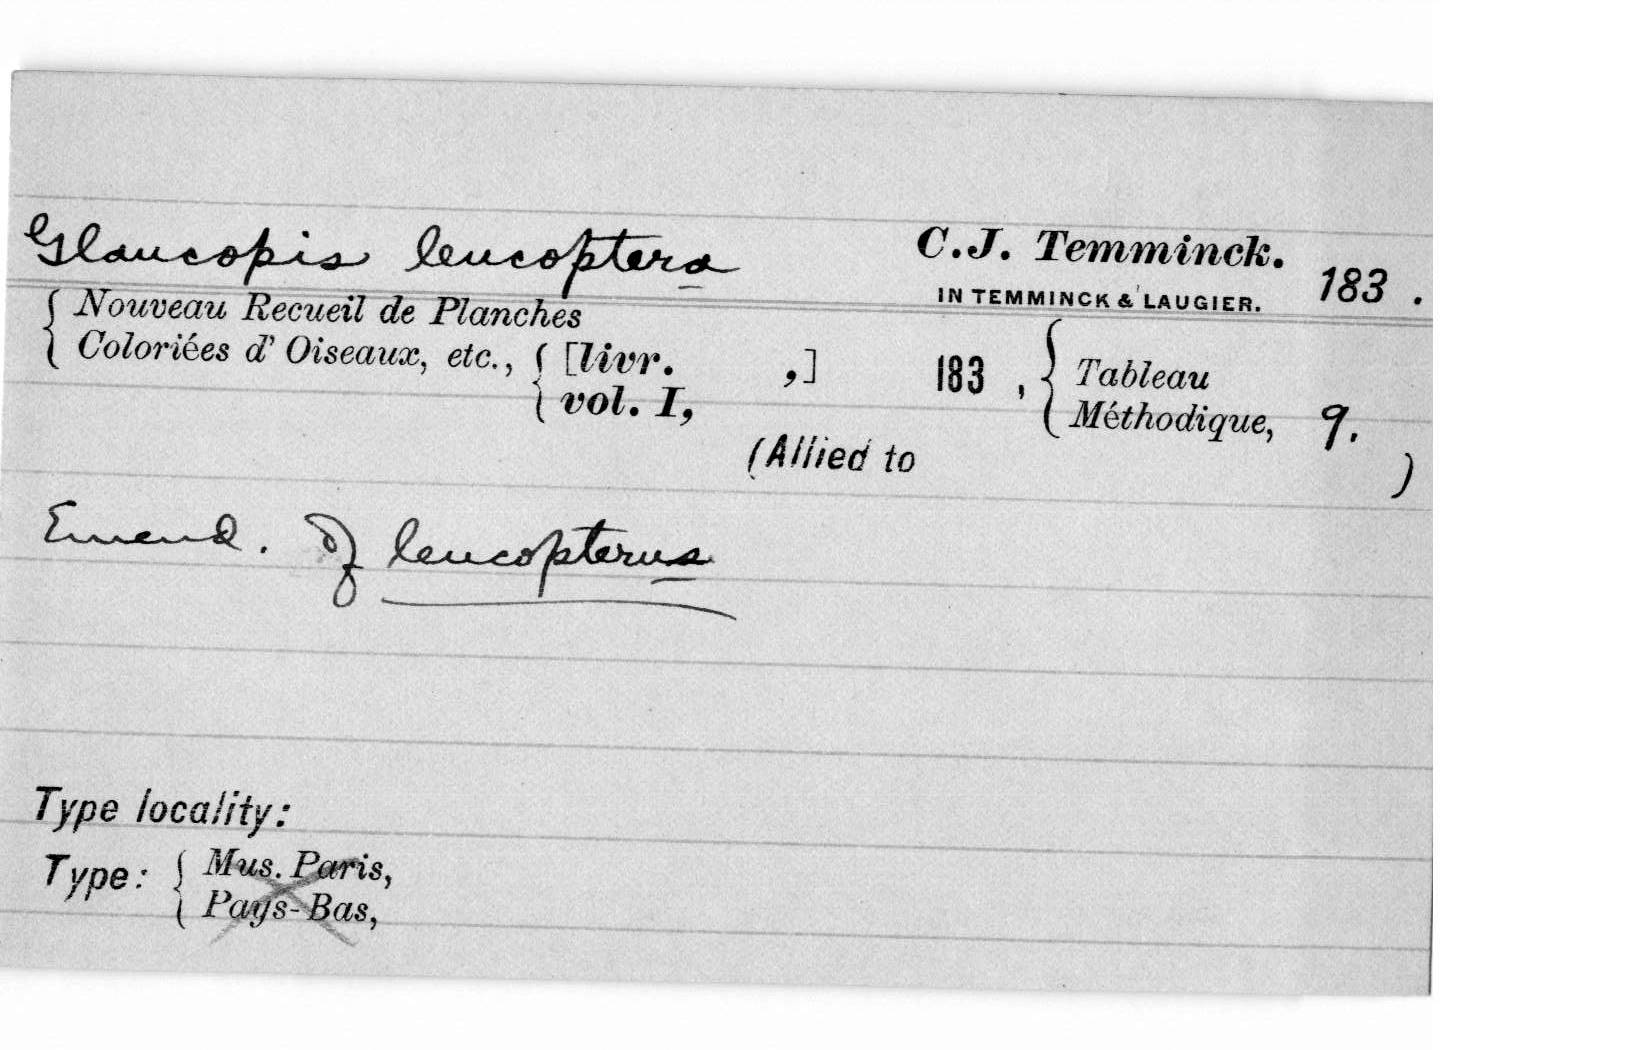 Glaucopis leucoptera C.J. Temminck.
IN TEMMINCK & LAUGIER. 183 .
{ Nouveau Recueil de Planches
Coloriées d' Oiseaux, etc., { [livr. ,] 183 , { Tableau
vol. I, Méthodique, 9.
(Allied to )
Emend. of leucopterus
Type locality:
Type: { Mus. Paris,
Pays-Bas,